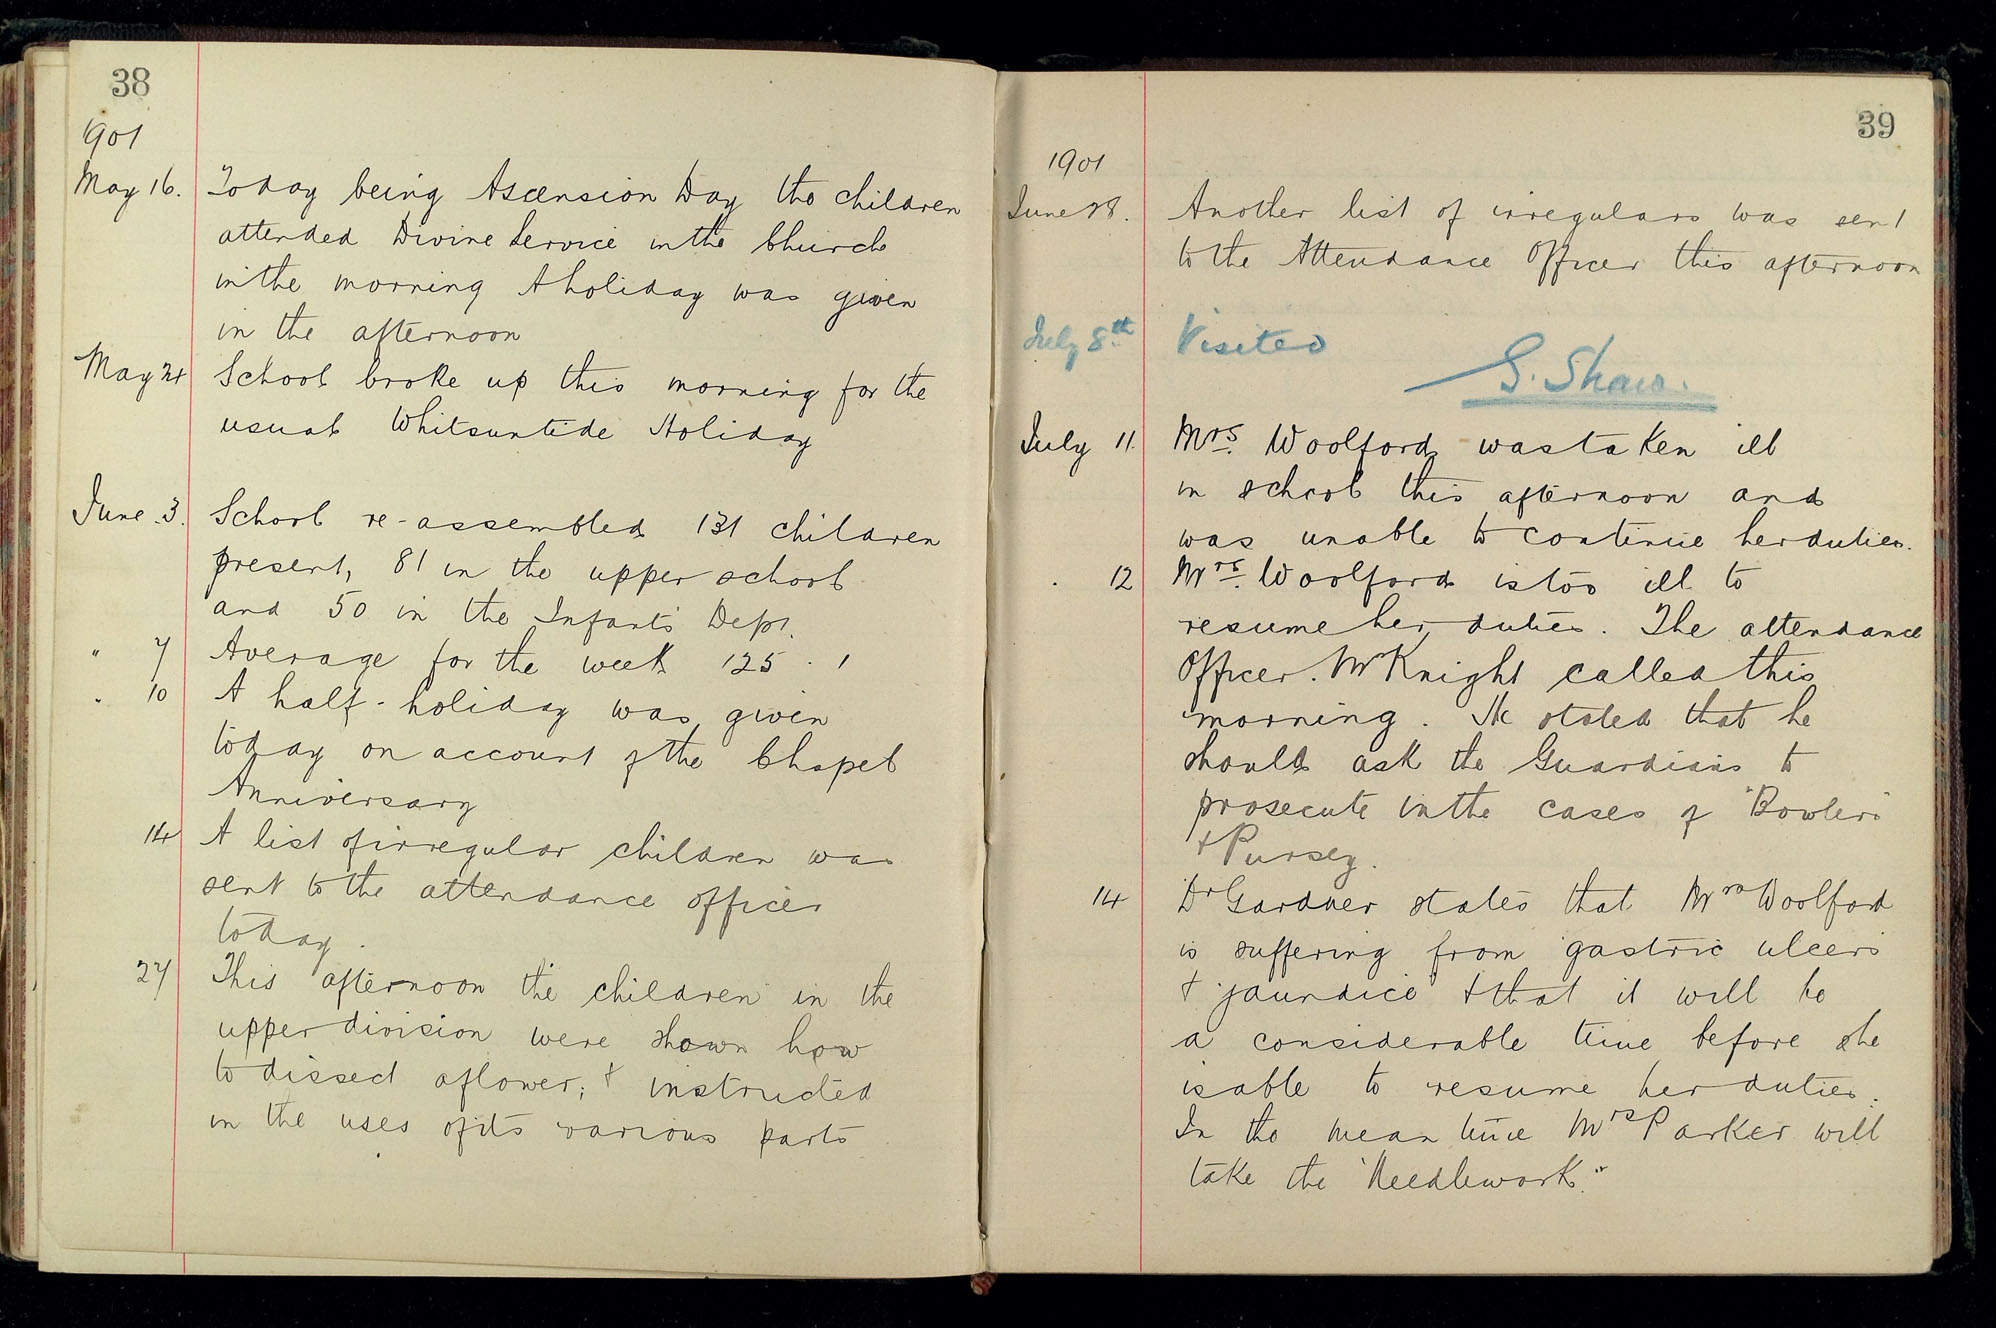 38
1901
May 16. Today being Ascension Day the children
attended Divine Service in the Church
in the morning A holiday was given
in the afternoon
May 24 School broke up this morning for the
usual Whitsuntide Holiday
June 3. School re-assembled 131 children
present, 81 in the upper school
and 50 in the Infants Dept.
" 7 Average for the week 125 . 1
" 10 A half-holiday was given
today on account of the Chapel
Anniversary
14 A list of irregular children was
sent to the attendance officer
today.
27 This afternoon the children in the
upper division were shown how
to dissect a flower; & instructed
in the uses of its various parts
39
1901
June 28. Another list of irregulars was sent
to the Attendance Officer this afternoon
July 8th Visited
G. Shaw.
July 11. Mrs. Woolford was taken ill
in school this afternoon and
was unable to continue her duties.
12 Mrs. Woolford is too ill to
resume her duties. The attendance
Officer. Mr Knight called this
morning. He stated that he
should ask the Guardians to
prosecute in the cases of "Bowlers"
& Pursey.
14 Dr Gardner states that Mrs Woolford
is suffering from gastric ulcers
& jaundice & that it will be
a considerable time before she
is able to resume her duties.
In the mean time Mrs Parker will
take the "Needlework."